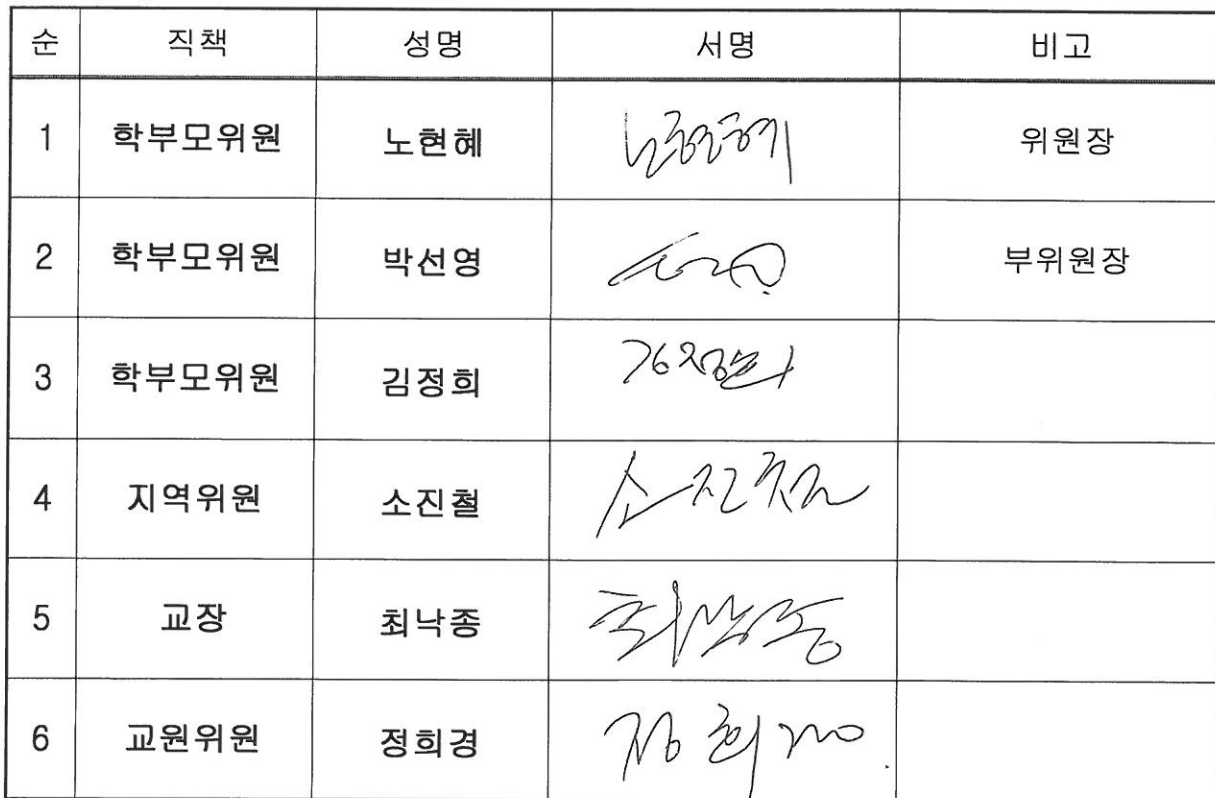 순 직책 성명 서명 비고
1 학부모위원 노현혜 노현혜 위원장
2 학부모위원 박선영 부위원장
3 학부모위원 김정희 김정희
4 지역위원 소진철 소진철
5 교장 최낙종 최낙종
6 교원위원 정희경 정희경